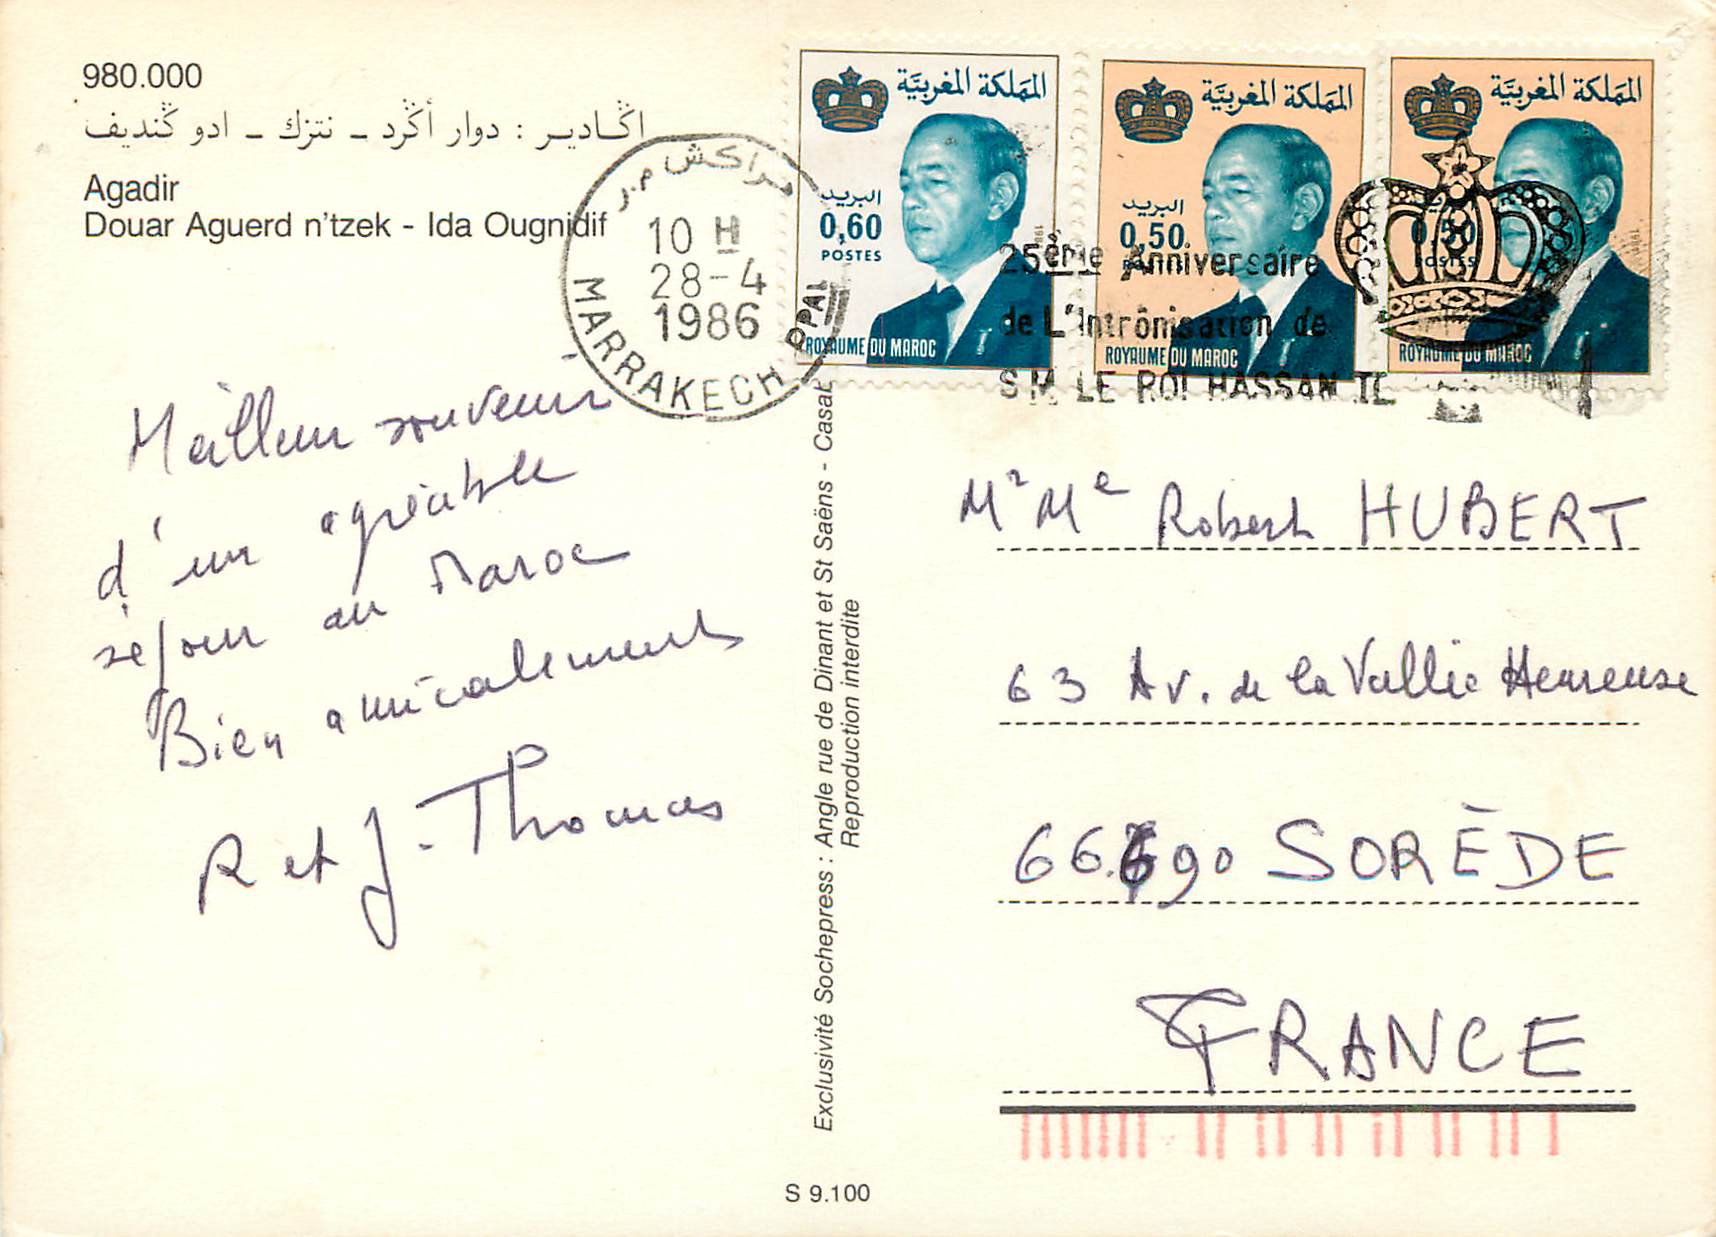 980.000
اڭـاديـر : دوار أڭرد ـ نتزك ـ ادو ڭنديف
Agadir
Douar Aguerd n'tzek - Ida Ougnidif
مراكش م.ر
10 H
28-4
1986
MARRAKECH PPAL
المملكة المغربية
البريد
0,60
POSTES
ROYAUME DU MAROC
المملكة المغربية
البريد
0,50
ROYAUME DU MAROC
المملكة المغربية
البريد
0,50
POSTES
ROYAUME DU MAROC
25ème Anniversaire
de L'Intrônisation de
S.M. LE ROI HASSAN II
Meilleur souvenir
d'un agréable
séjour au Maroc
Bien amicalement
R et J. Thomas
Exclusivité Sochepress : Angle rue de Dinant et St Saëns - Casab
Reproduction interdite
Mr Me Robert HUBERT
63 Av. de la Vallée Heureuse
66690 SORÈDE
FRANCE
S 9.100